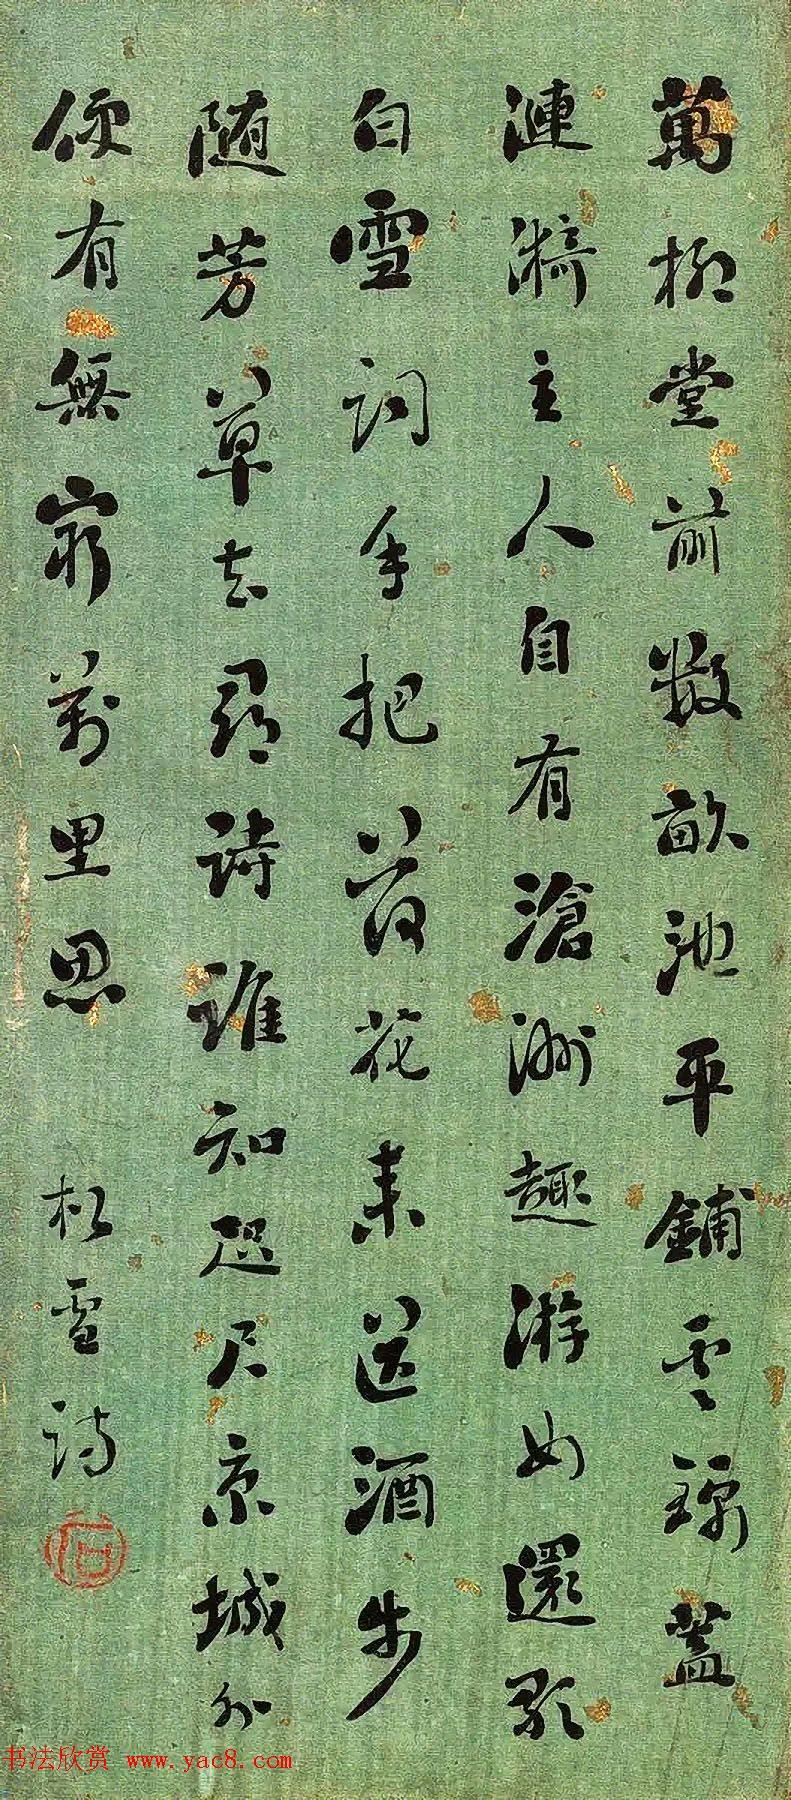 萬柳堂前數畝池平鋪雲錦蓋
漣漪主人自有滄洲趣游女還歌
白雪詞手把荷花来送酒步
随芳草去尋詩誰知咫尺京城外
便有無窮萬里思 松雪詩
书法欣赏 www.yac8.com